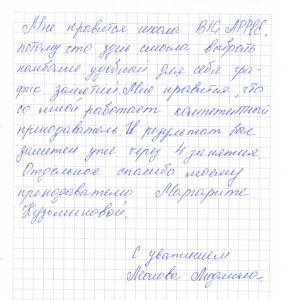 Мне нравится школа BIG APPLE,
потому что здесь смогла выбрать
наиболее удобный для себя гра-
фик занятий. Мне нравится, что
со мной работает компетентный
преподаватель и результат был
заметен уже через 4 занятия.
Отдельное спасибо моему
преподавателю Маргарите
Кузьминовой.
С уважением
Людмила